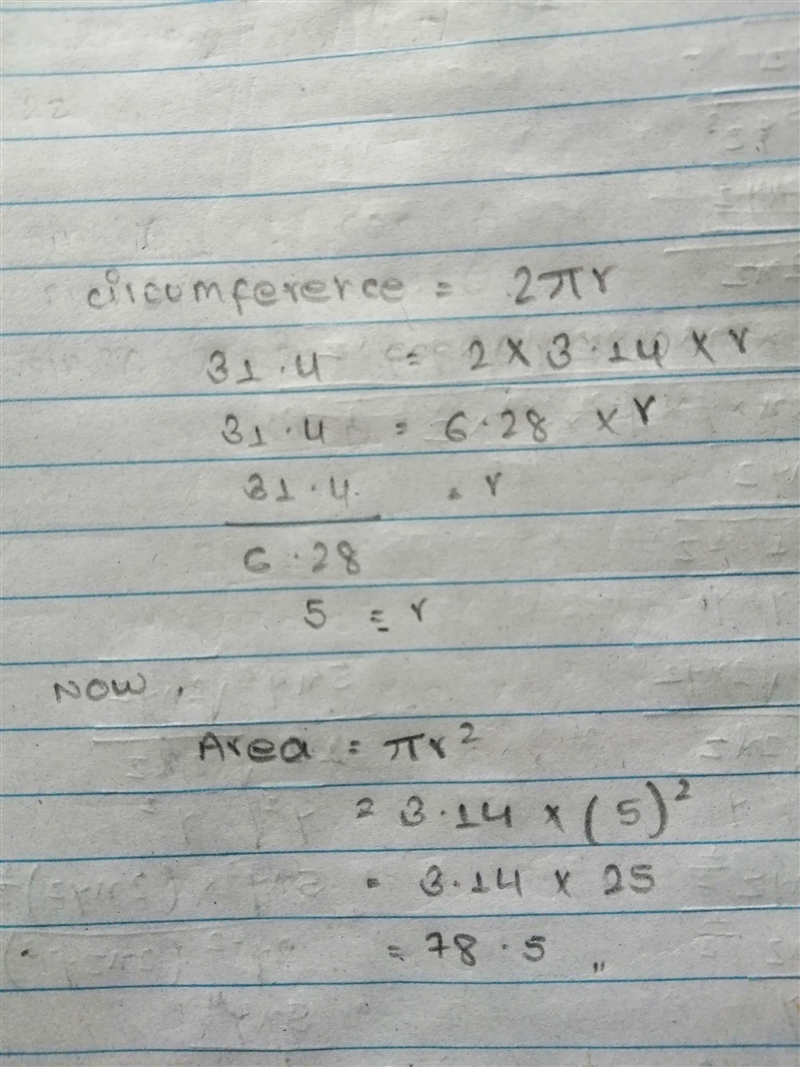 circumference = 2πr
31.4 = 2 × 3.14 × r
31.4 = 6.28 × r
31.4 = r
6.28
5 = r
Now,
Area = πr²
= 3.14 × (5)²
= 3.14 × 25
= 78.5 ,,